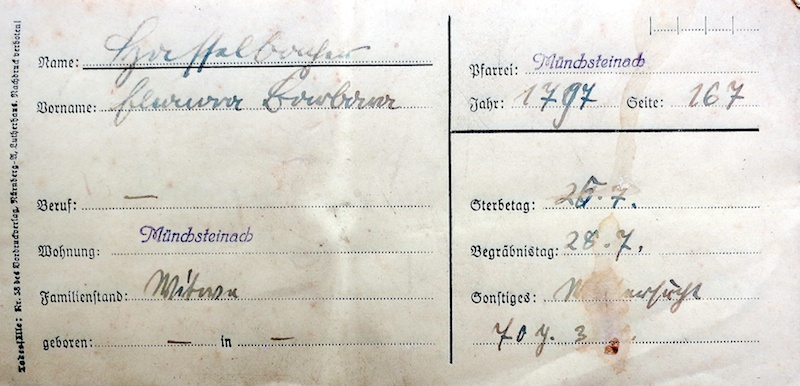 Name: Hasselbacher
Vorname: Eleonora Barbara
Beruf: —
Wohnung: Münchsteinach
Familienstand: Witwe
geboren: — in —
Pfarrei: Münchsteinach
Jahr: 1797 Seite: 167
Sterbetag: 25.7.
Begräbnistag: 28.7.
Sonstiges: Wassersucht
70 J. 3
Todesfälle: Nr. 58 des Vordruckverlag, Nürnberg-A, Lutherhaus. Nachdruck verboten!